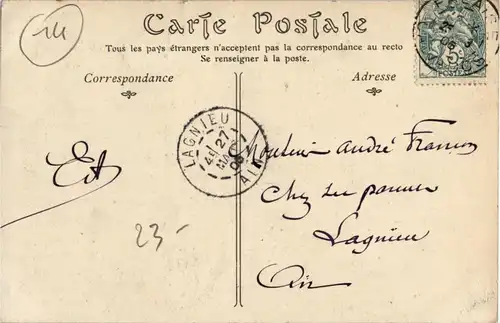 14
Carte Postale
Tous les pays étrangers n'acceptent pas la correspondance au recto
Se renseigner à la poste.
Correspondance
Adresse
LAGNIEU
27
AIN
POSTES
Monsieur André
Chez ses
Lagnieu
Ain
23-